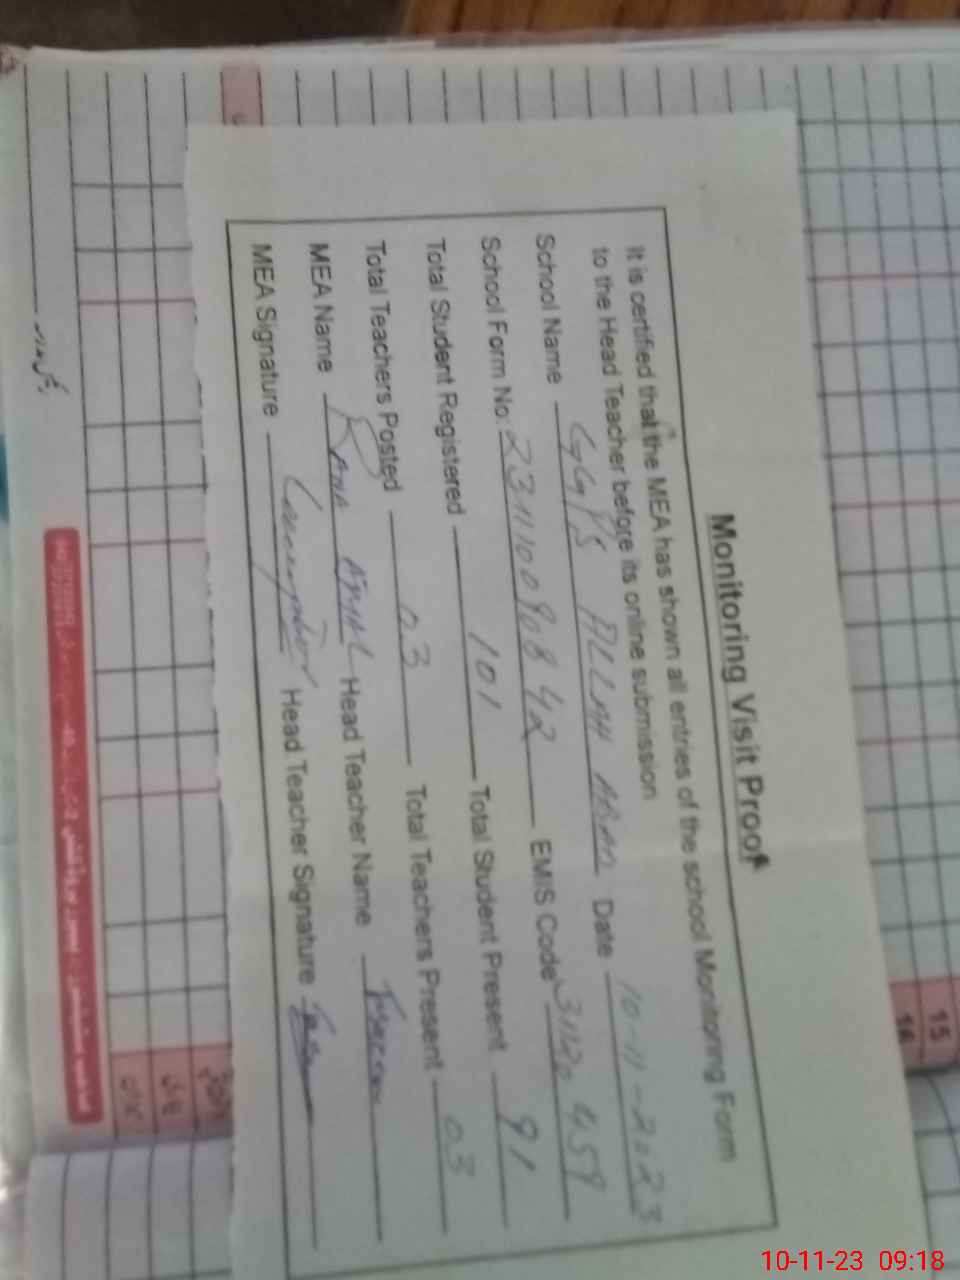 Monitoring Visit Proof
It is certified that the MEA has shown all entries of the school Monitoring Form
to the Head Teacher before its online submission
School Name GGPS ALLAH ABAD Date 10-11-2023
School Form No: 2311100908 42 EMIS Code 31120 459
Total Student Registered 101 Total Student Present 91
Total Teachers Posted 03 Total Teachers Present 03
MEA Name RANA AJMAL Head Teacher Name
MEA Signature Head Teacher Signature
15
16
10-11-23 09:18